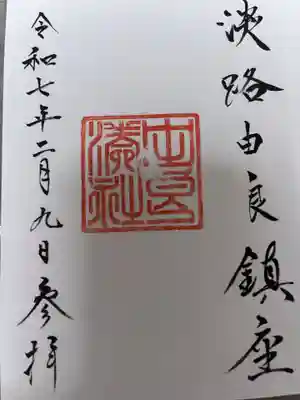 淡路由良鎮座
令和七年二月九日参拝